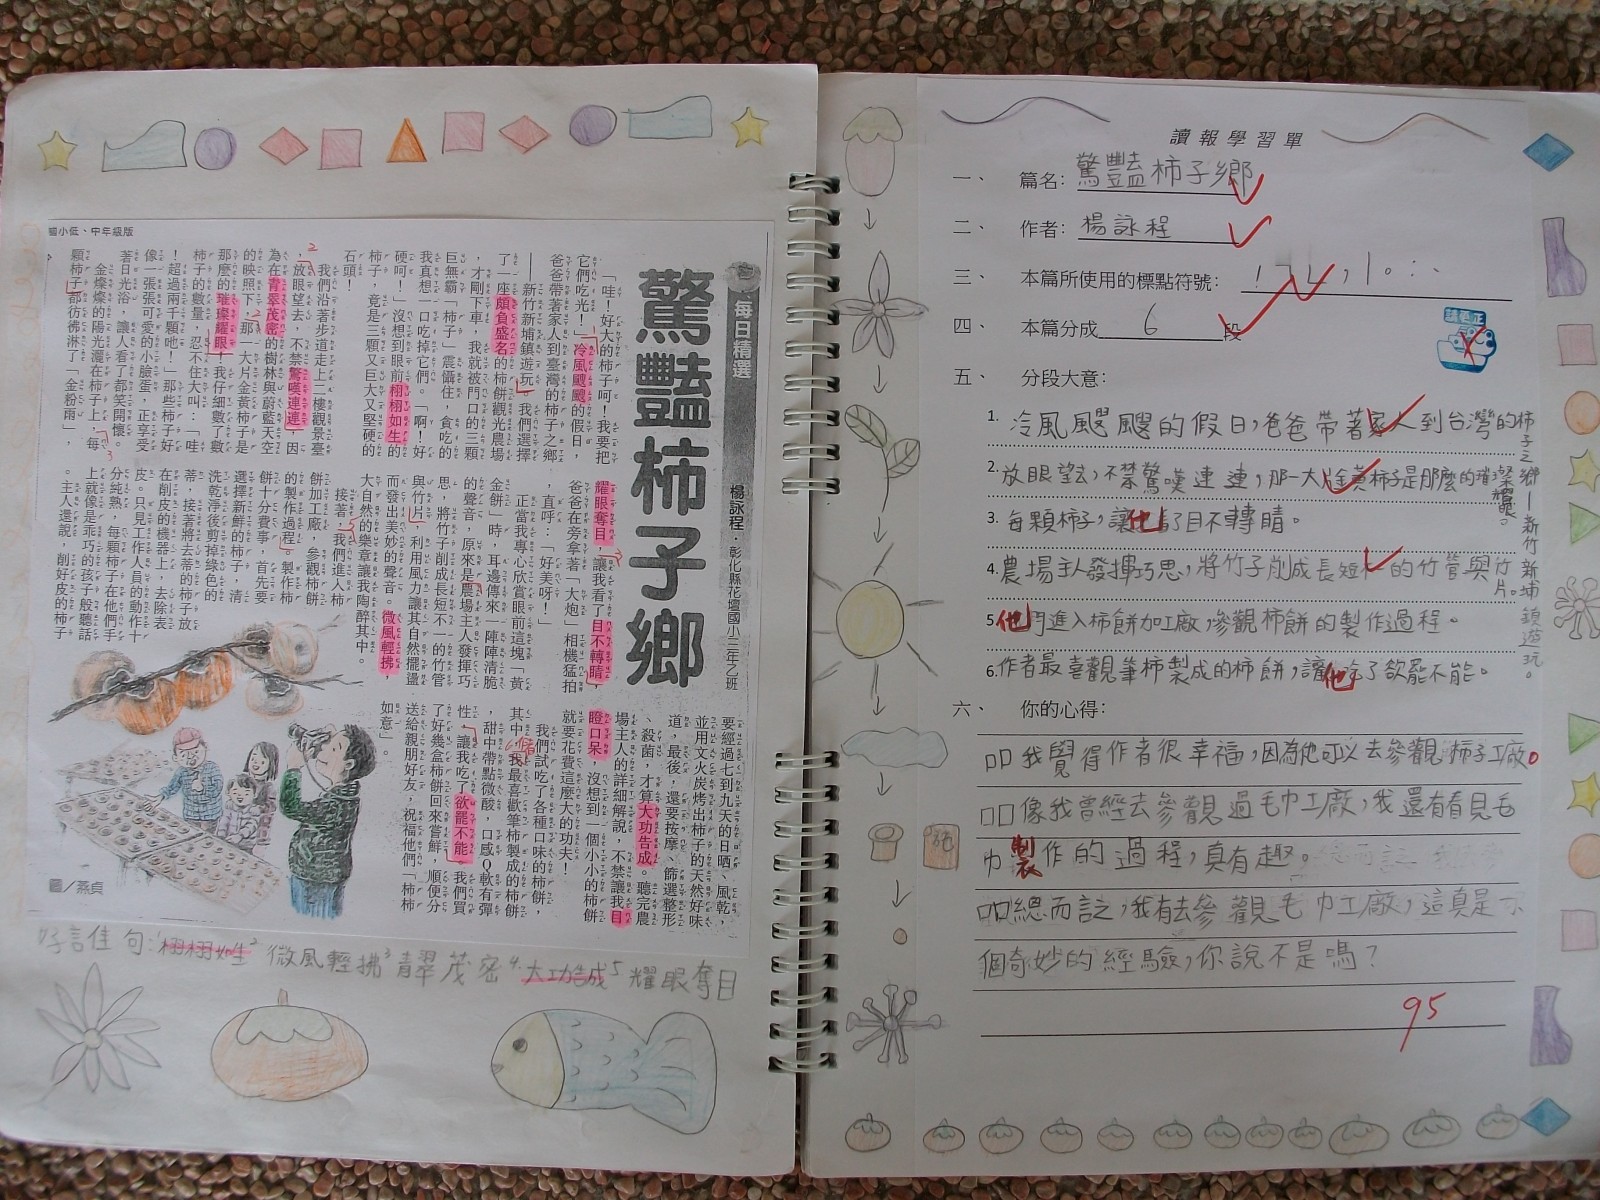 國小低、中年級版
每日精選
驚豔柿子鄉
楊詠程・彰化縣花壇國小三年乙班
「哇！好大的柿子呵！我要把
它們吃光！」冷風颼颼的假日，
爸爸帶著家人到臺灣的柿子之鄉
——新竹新埔鎮遊玩。我們選擇
了一座頗負盛名的柿餅觀光農場
，才剛下車，我就被門口的三顆
巨無霸「柿子」震懾住，貪吃的
我真想一口吃掉它們。「啊！好
硬呵！」沒想到眼前栩栩如生的
柿子，竟是三顆又巨大又堅硬的
石頭！
我們沿著步道走上二樓觀景臺
，放眼望去，不禁驚嘆連連，因
為在青翠茂密的樹林與蔚藍天空
的映照下，那一大片金黃柿子是
那麼的璀璨耀眼！我仔細數了數
柿子的數量，忍不住大叫：「哇
！超過兩千顆吔！」那些柿子好
像一張張可愛的小臉蛋，正享受
著日光浴，讓人看了都笑開懷。
金燦燦的陽光灑在柿子上，每
顆柿子都彷彿淋了「金粉雨」，
耀眼奪目，讓我看了目不轉睛，
爸爸在旁拿著「大炮」相機猛拍
，直呼：「好美呀！」
正當我專心欣賞眼前這塊「黃
金餅」時，耳邊傳來一陣陣清脆
的聲音，原來是農場主人發揮巧
思，將竹子削成長短不一的竹管
與竹片，利用風力讓其自然擺盪
而發出美妙的聲音。微風輕拂，
大自然的樂章讓我陶醉其中。
接著，我們進入柿
餅加工廠，參觀柿餅
的製作過程。製作柿
餅十分費事，首先要
選擇新鮮的柿子，清
洗乾淨後剪掉綠色的
蒂，接著將去蒂的柿子放
在削皮的機器上，去除表
皮。只見工作人員的動作十
分純熟，每顆柿子在他們手
上就像是乖巧的孩子般聽話
。主人還說，削好皮的柿子
要經過七到九天的日晒、風乾，
並用文火炭烤出柿子的天然好味
道，最後，還要按摩、篩選整形
、殺菌，才算大功告成。聽完農
場主人的詳細解說，不禁讓我目
瞪口呆，沒想到一個小小的柿餅
就要花費這麼大的功夫！
我們試吃了各種口味的柿餅，
其中，我最喜歡筆柿製成的柿餅
，甜中帶點微酸，口感Q軟有彈
性，讓我吃了欲罷不能。我們買
了好幾盒柿餅回來嘗鮮，順便分
送給親朋好友，祝福他們「柿柿
如意」。
圖／燕貞
好言佳句:1栩栩如生2微風輕拂3青翠茂密4.大功告成5耀眼奪目
讀報學習單
一、 篇名：驚豔柿子鄉
二、 作者：楊詠程
三、 本篇所使用的標點符號：
四、 本篇分成 6 段
五、 分段大意：
1. 冷風颼颼的假日，爸爸帶著家人到台灣的柿子之鄉—新竹新埔鎮遊玩。
2. 放眼望去，不禁驚嘆連連，那一大片金黃柿子是那麼的璀璨耀眼。
3. 每顆柿子，讓他看了目不轉睛。
4. 農場主人發揮巧思，將竹子削成長短不一的竹管與竹片。
5. 他們進入柿餅加工廠，參觀柿餅的製作過程。
6. 作者最喜觀筆柿製成的柿餅，讓他吃了欲罷不能。
六、 你的心得：
我覺得作者很幸福，因為他可以去參觀柿子工廠。
像我曾經去參觀過毛巾工廠，我還有看見毛
巾製作的過程，真有趣。
總而言之，我有去參觀毛巾工廠，這真是一
個奇妙的經驗，你說不是嗎？
95